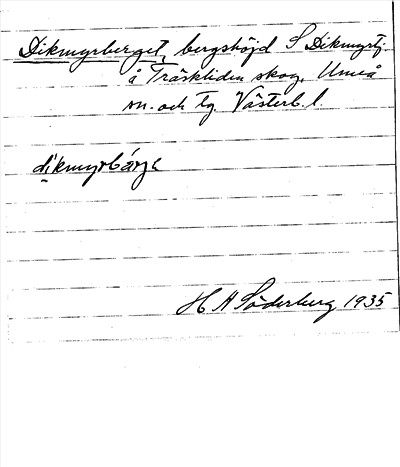 Dikmyrberget, bergshöjd S Dikmyrtj.
å Träskliden skog, Umeå
sn. och tg. Västerb. l.
dikmyrbärje
H A Söderberg 1935